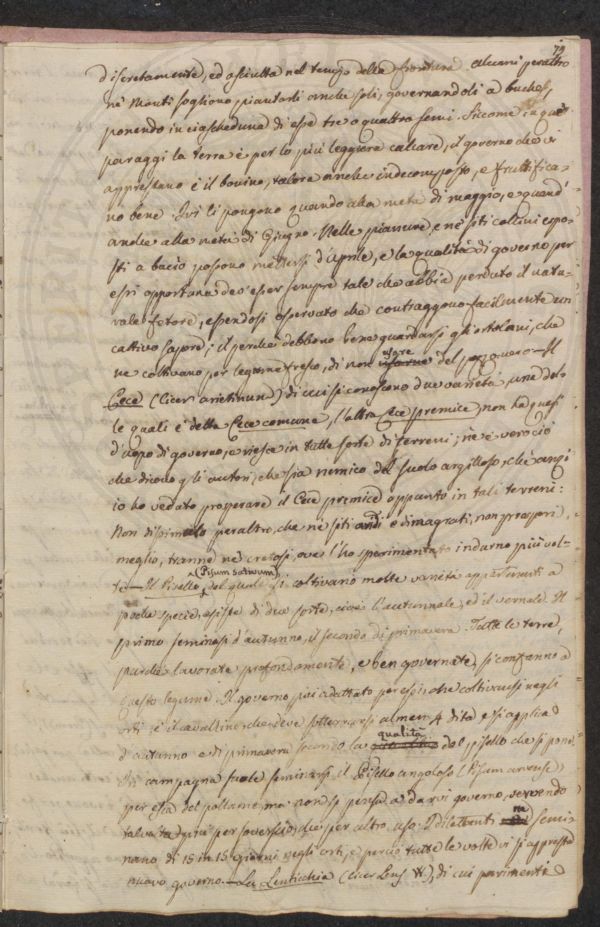 79
discretamente, ed asciutta nel tempo della fioritura alcuni peraltro
ne' Monti sogliono piantarli anche soli, governandoli a buche,
ponendo in ciascheduna di esse tre o quattro semi. Siccome in que'
paraggi la terra è per lo più leggiera calcare, il governo che vi
apprestano è il bovino, talora anche indecomposto, e fruttifica-
no bene. Ivi li pongono quando alla metà di maggio, e quand'
anche alla metà di Giugno. Nelle pianure, e ne' siti collini espo-
sti a bacio possono mettersi d'Aprile, e la qualità di governo per
essi opportuna dev'esser sempre tale che abbia perduto il natu-
rale fetore, essendosi osservato che contraggono facilmente un
cattivo sapore; il perchè debbono bene guardarsi gli ortolani, che
ne coltivano per legume fresco, di non usare del Il
Cece (Cicer arietinum) di cui si conoscono due varietà, una del-
le quali è detta Cece comune, l'altra Cece premice, non ha quasi
d'uopo di governo, e riesca in tutte sorte di terreni; nè è vero ciò
che dicono gli autori, che sia nemico del suolo argilloso, chè anzi
io ho veduto prosperare il Cece premice appunto in tali terreni:
Non dissimulo peraltro, che ne' siti aridi e dimagrati, non prosperi
meglio, tranne ne' cretosi, ove l'ho sperimentato indarno più vol-
te — Il Pisello (Pisum sativum) del quale si coltivano molte varietà appartenenti a
poche specie, esiste di due sorte, cioè l'autunnale, ed il vernale. Il
primo seminasi d'autunno, il secondo di primavera. Tutte le terre,
purchè lavorate profondamente, e ben governate, si confanno a
questo legume. Il governo più adattato per essi, che coltivansi negli
orti è il cavallino, che deve sotterrarsi almen 4 dita, e si applica
d'autunno e di primavera secondo la qualità del pisello che si pone.
In campagna suole seminarsi il Pisello angoloso (Pisum arvense)
per esca del pollame, ma non si pensa a darvi governo, servendo
talvolta per soverscio, che per altro uso. I dilettanti ne semi-
nano di 15 in 15 giorni negli orti, e perciò tutte le volte vi si appresta
nuovo governo — La Lenticchia (Cicer Lens W.), di cui parimenti